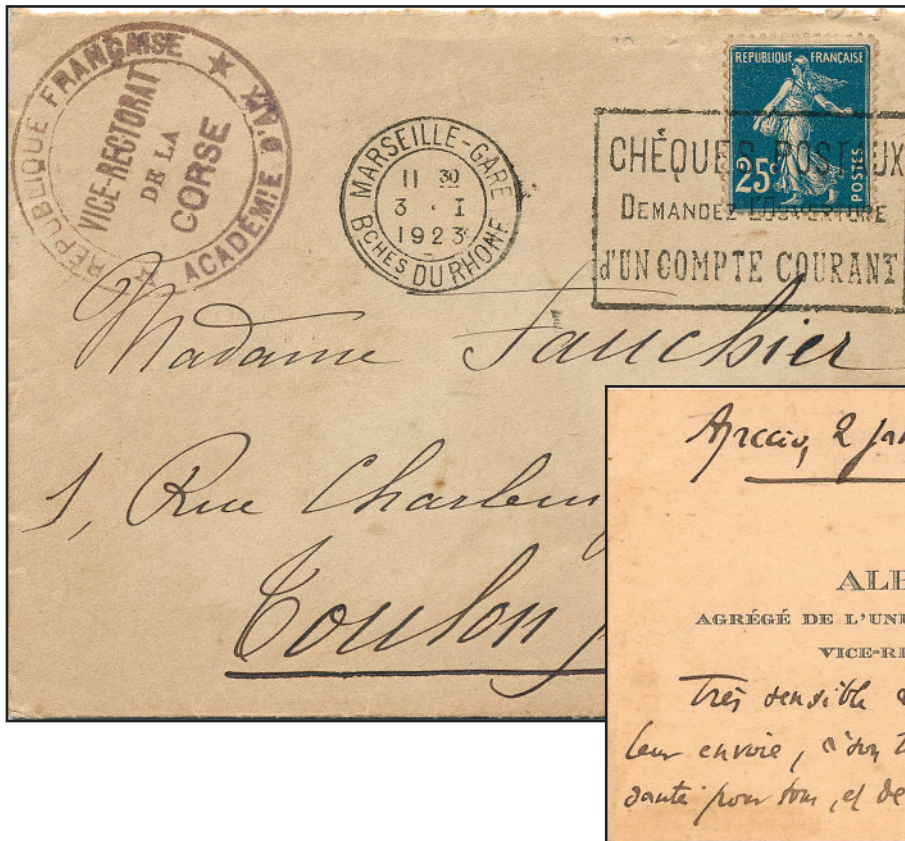 RÉPUBLIQUE FRANÇAISE ★ ACADÉMIE D'AIX ★
VICE-RECTORAT
DE LA
CORSE
MARSEILLE-GARE
11 30
3 · I
1923
BCHES DU RHONE
REPUBLIQUE FRANÇAISE
25c
POSTES
CHÉQUES POSTAUX
DEMANDEZ L'OUVERTURE
d'UN COMPTE COURANT
Madame Fauchier
1, Rue
Toulon
2
ALB
AGRÉGÉ DE L'UNI
VICE-RE
Très sensible
leur envoie,
santé pour tous, et de